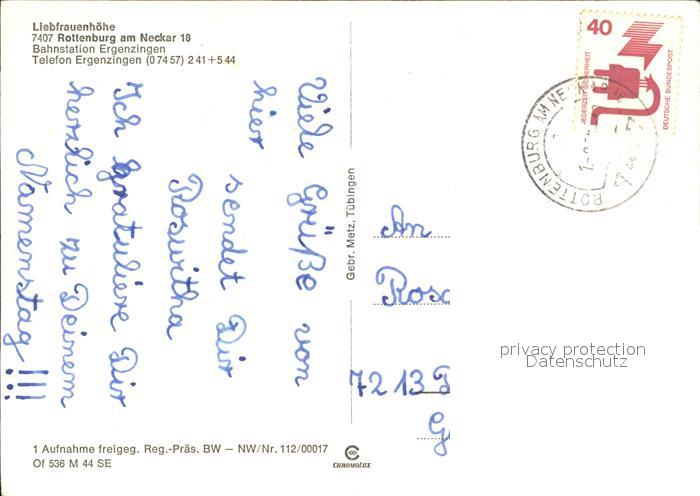 Liebfrauenhöhe
7407 Rottenburg am Neckar 18
Bahnstation Ergenzingen
Telefon Ergenzingen (0 74 57) 2 41 + 5 44
Viele Grüße von
hier
sendet Dir
Roswitha
Ich gratuliere Dir
herzlich zu Deinem
Namenstag !!!
Gebr. Metz, Tübingen
40
JEDERZEIT SICHERHEIT
DEUTSCHE BUNDESPOST
ROTTENBURG AM NE
An
Rosa
7213
G
privacy protection
Datenschutz
1 Aufnahme freigeg. Reg.-Präs. BW — NW/Nr. 112/00017
Of 536 M 44 SE
CHROMOLUX